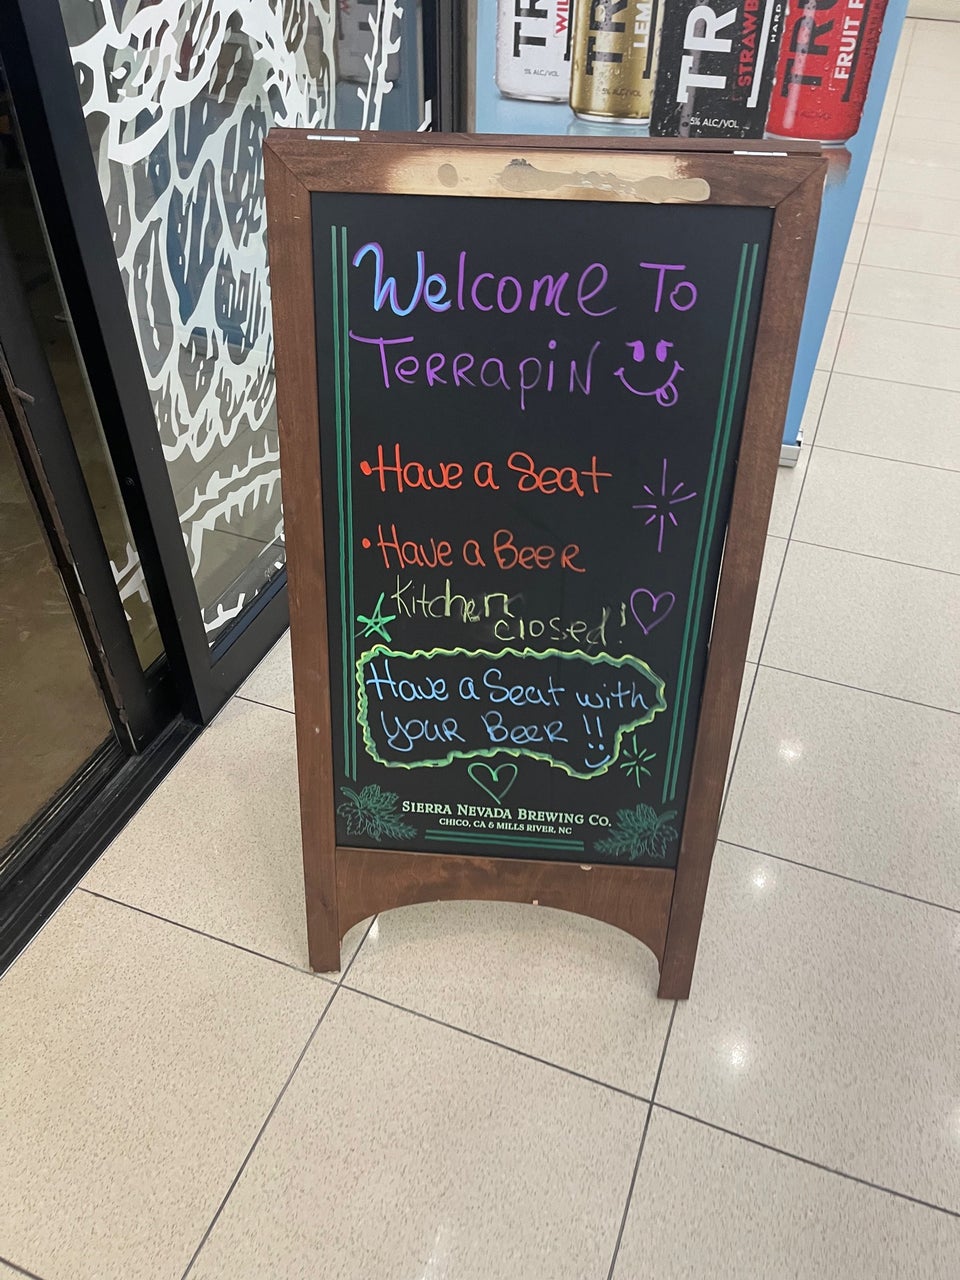 TR
WIL
5% ALC/VOL
TR
LEM
5% ALC/VOL
TR
STRAWB
HARD
5% ALC/VOL
TR
FRUIT P
Welcome To
Terrapin
• Have a Seat
• Have a Beer
Kitchen
closed!
Have a Seat with
your Beer !!
SIERRA NEVADA BREWING CO.
CHICO, CA & MILLS RIVER, NC